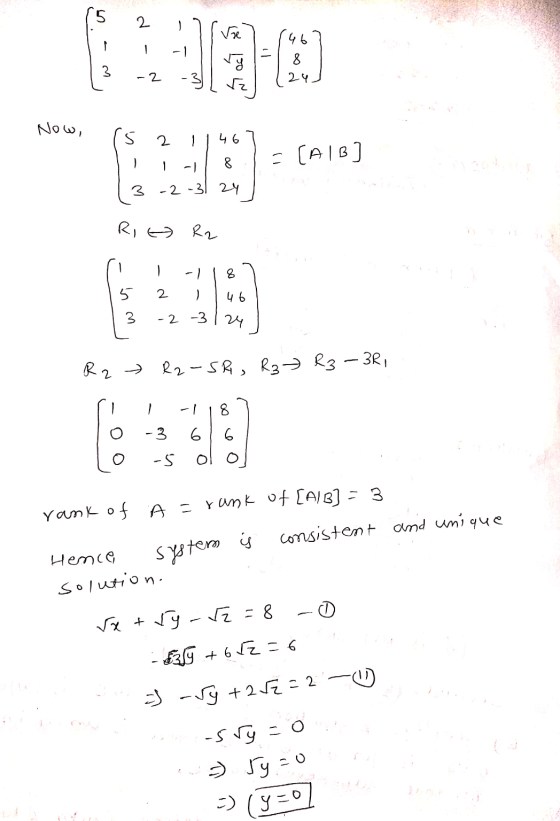 [5 2 1; 1 1 -1; 3 -2 -3] [√x; √y; √z] = [46; 8; 24]
Now,
[5 2 1 | 46; 1 1 -1 | 8; 3 -2 -3 | 24] = [A|B]
R₁ ↔ R₂
[1 1 -1 | 8; 5 2 1 | 46; 3 -2 -3 | 24]
R₂ → R₂ - 5R₁, R₃ → R₃ - 3R₁
[1 1 -1 | 8; 0 -3 6 | 6; 0 -5 0 | 0]
rank of A = rank of [A|B] = 3
Hence system is consistent and unique
solution.
√x + √y - √z = 8 - (I)
-3√y + 6√z = 6
⇒ -√y + 2√z = 2 - (II)
-5√y = 0
⇒ √y = 0
⇒ y = 0